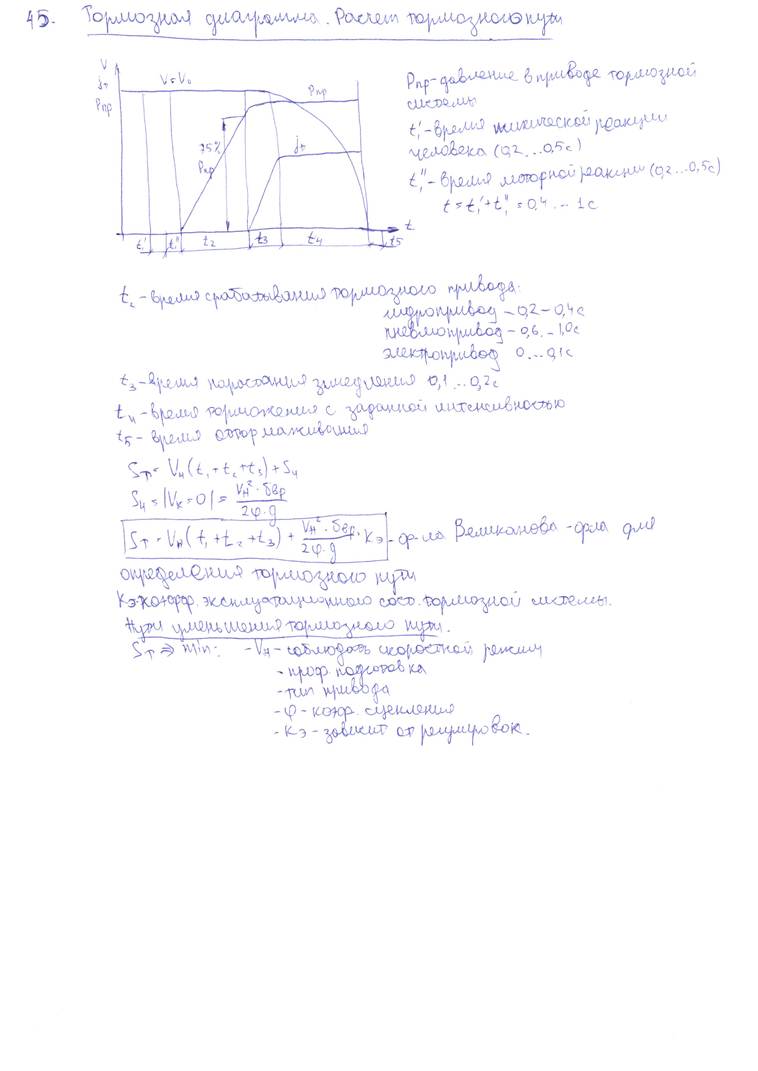 45. Тормозная диаграмма. Расчет тормозного пути
V
jт
Pпр
V=V₀
Pпр
75%
Pпр
jт
t
t₁' t₁'' t₂ t₃ t₄ t₅
Pпр-давление в приводе тормозной
системы
t₁'-время психической реакции
человека (0,2...0,5с)
t₁''-время моторной реакции (0,2...0,5с)
t=t₁'+t₁''=0,4...1с
t₂-время срабатывания тормозного привода:
гидропривод -0,2-0,4с
пневмопривод-0,6..-1,0с
электропривод 0...0,1с
t₃-время наростания замедления 0,1...0,2с
t₄-время торможения с заданной интенсивностью
t₅- время оттормаживания
Sт=Vн(t₁+t₂+t₃)+S₄
S₄=|Vк=0|=Vн²·δвр/2φ·g
Sт=Vн(t₁+t₂+t₃)+Vн²·δвр/2φ·g·Kэ-ф-ла Великанова-ф-ла для
определения тормозного пути
Kэ-коэфф. эксплуатационного сост. тормозной системы.
Пути уменьшения тормозного пути.
Sт⇒min: -Vн-соблюдать скоростной режим
-проф. подготовка
-тип привода
-φ-коэф. сцепления
-Kэ-зависит от регулировок.